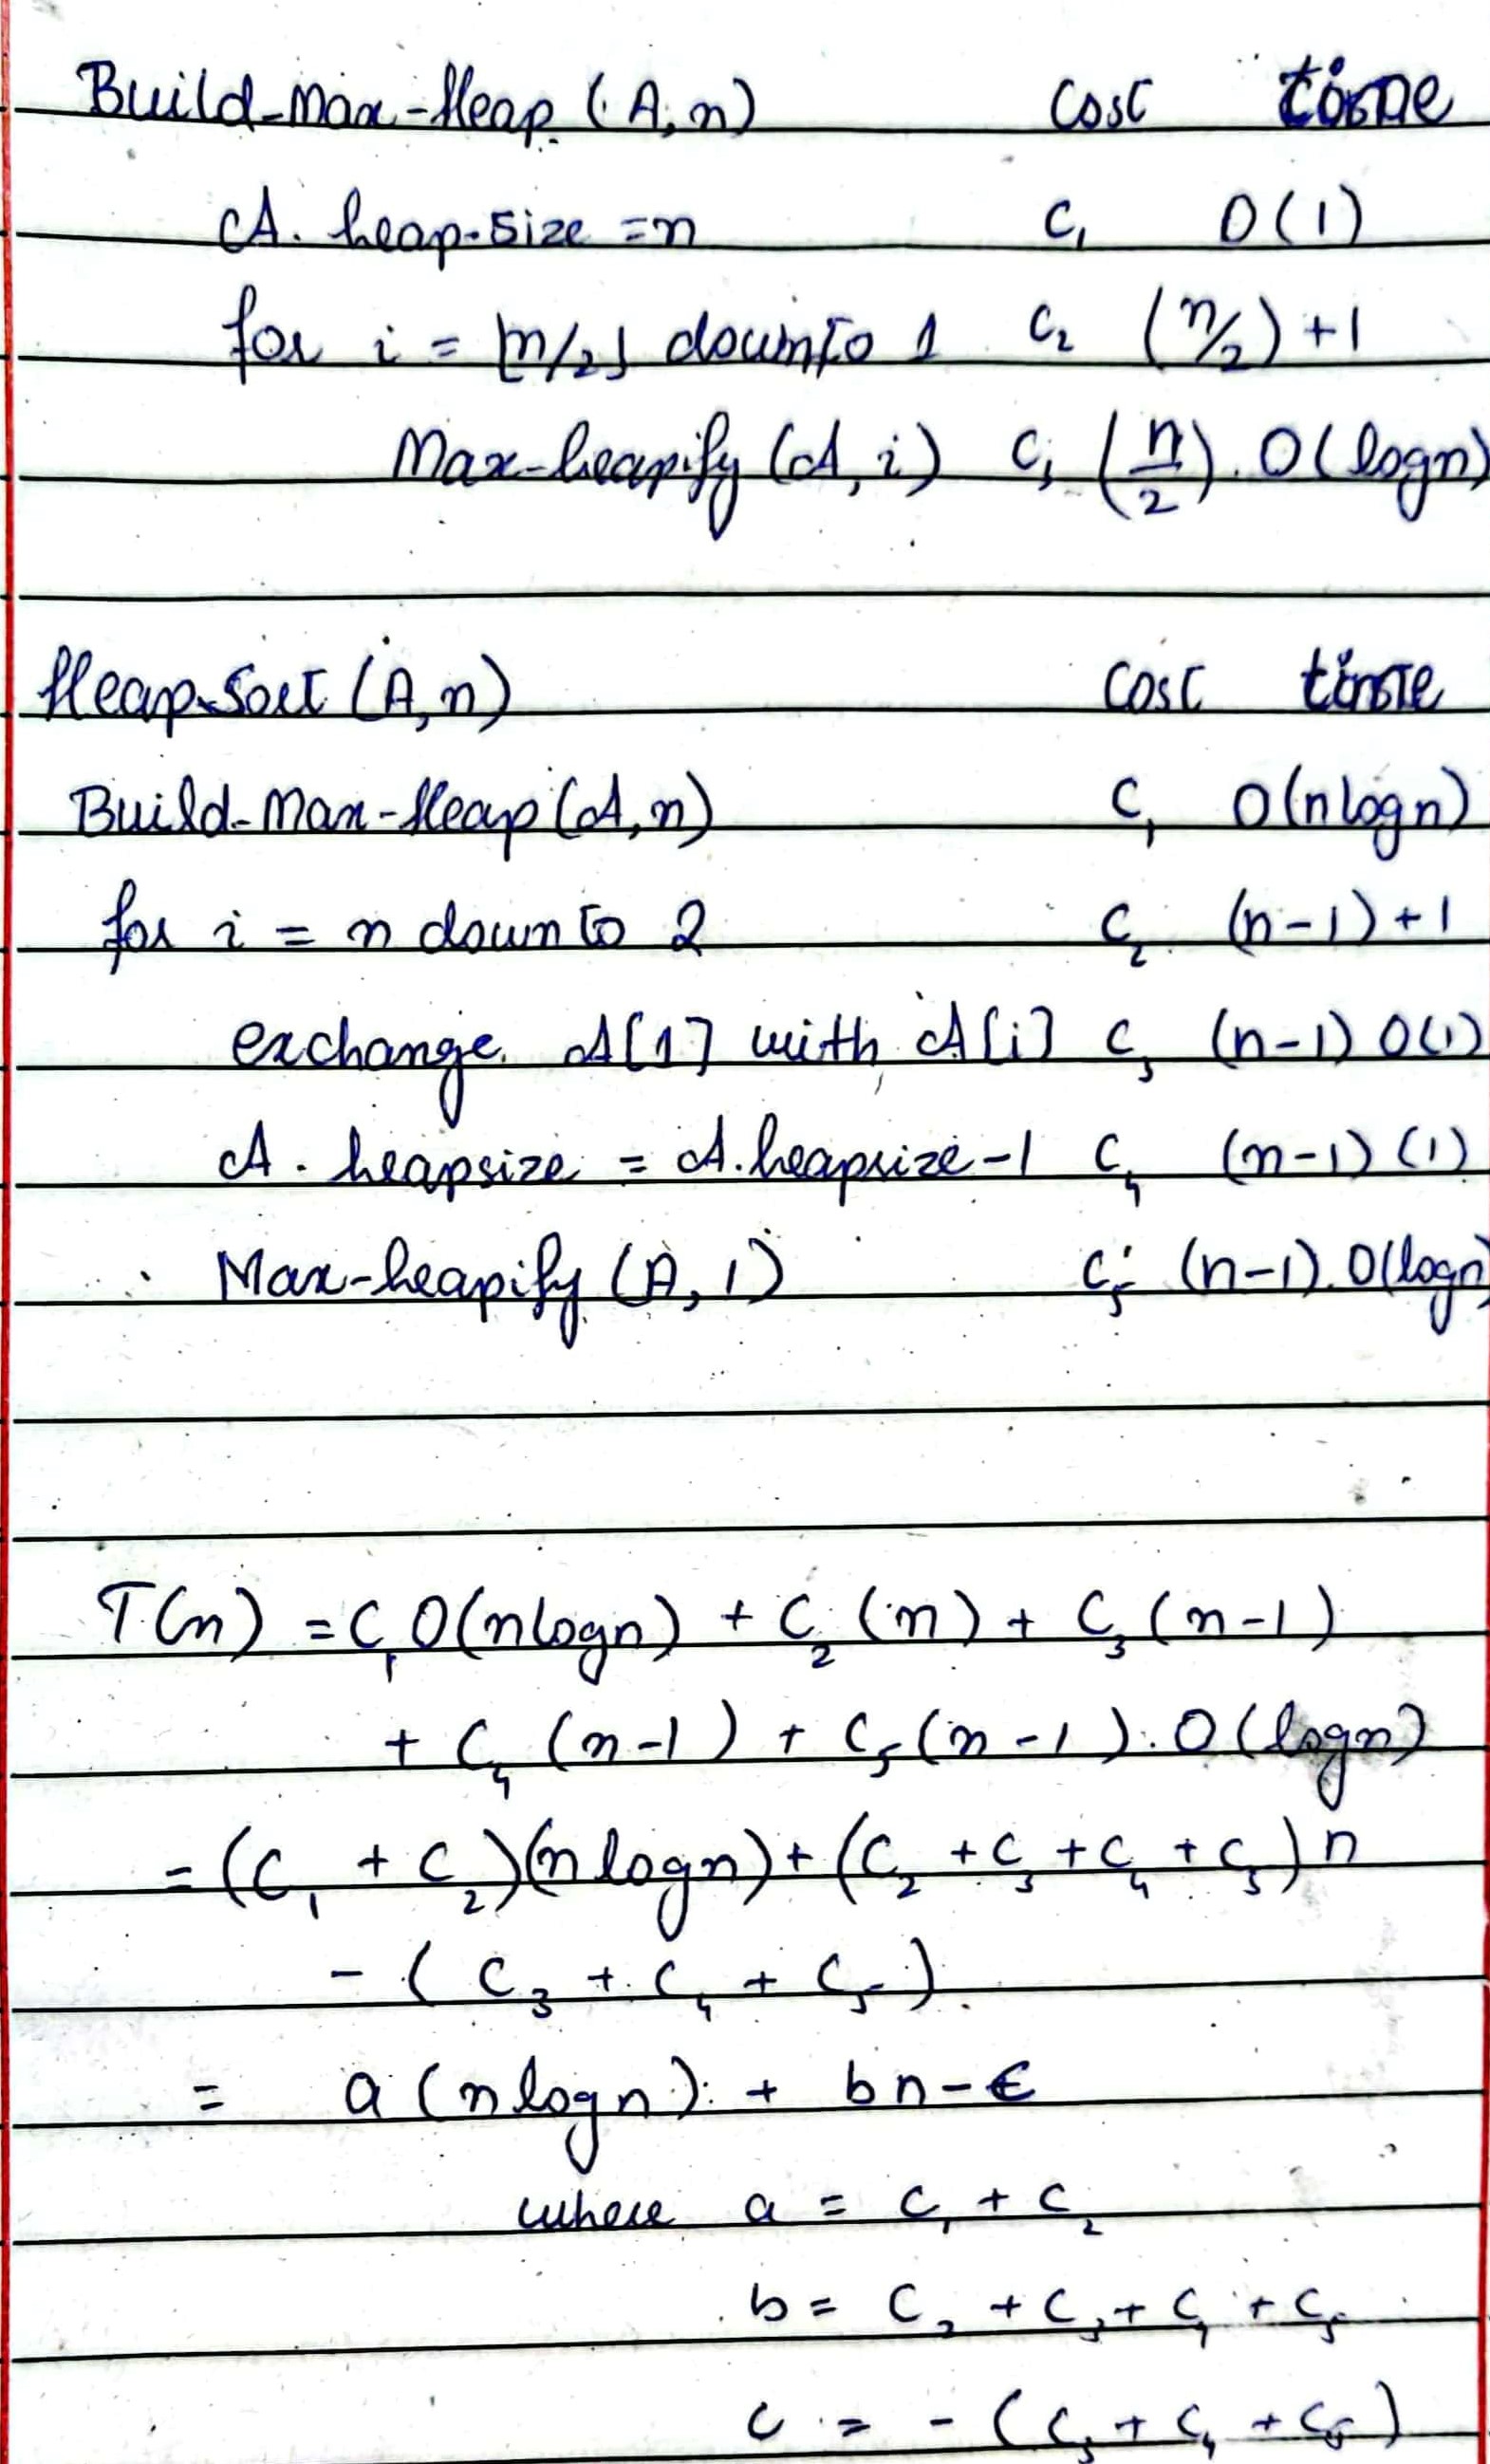 Build-Max-Heap (A, n) cost time
A. heap-size = n C₁ O(1)
for i = ⌊n/2⌋ downto 1 C₂ (n/2) + 1
Max-heapify (A, i) C₃ (n/2) . O(logn)
Heap-Sort (A, n) cost time
Build-Max-Heap (A, n) C₁ O(nlogn)
for i = n down to 2 C₂ (n-1) + 1
exchange A[1] with A[i] C₃ (n-1) O(1)
A. heapsize = A.heapsize - 1 C₄ (n-1) (1)
Max-heapify (A, 1) C₅ (n-1). O(logn)
T(n) = C₁ O(nlogn) + C₂ (n) + C₃ (n-1)
+ C₄ (n-1) + C₅ (n-1). O(logn)
= (C₁ + C₂)(n logn) + (C₂ + C₃ + C₄ + C₅) n
- (C₃ + C₄ + C₅)
= a (nlogn) + bn - c
where a = C₁ + C₂
b = C₂ + C₃ + C₄ + C₅
c = - (C₃ + C₄ + C₅)